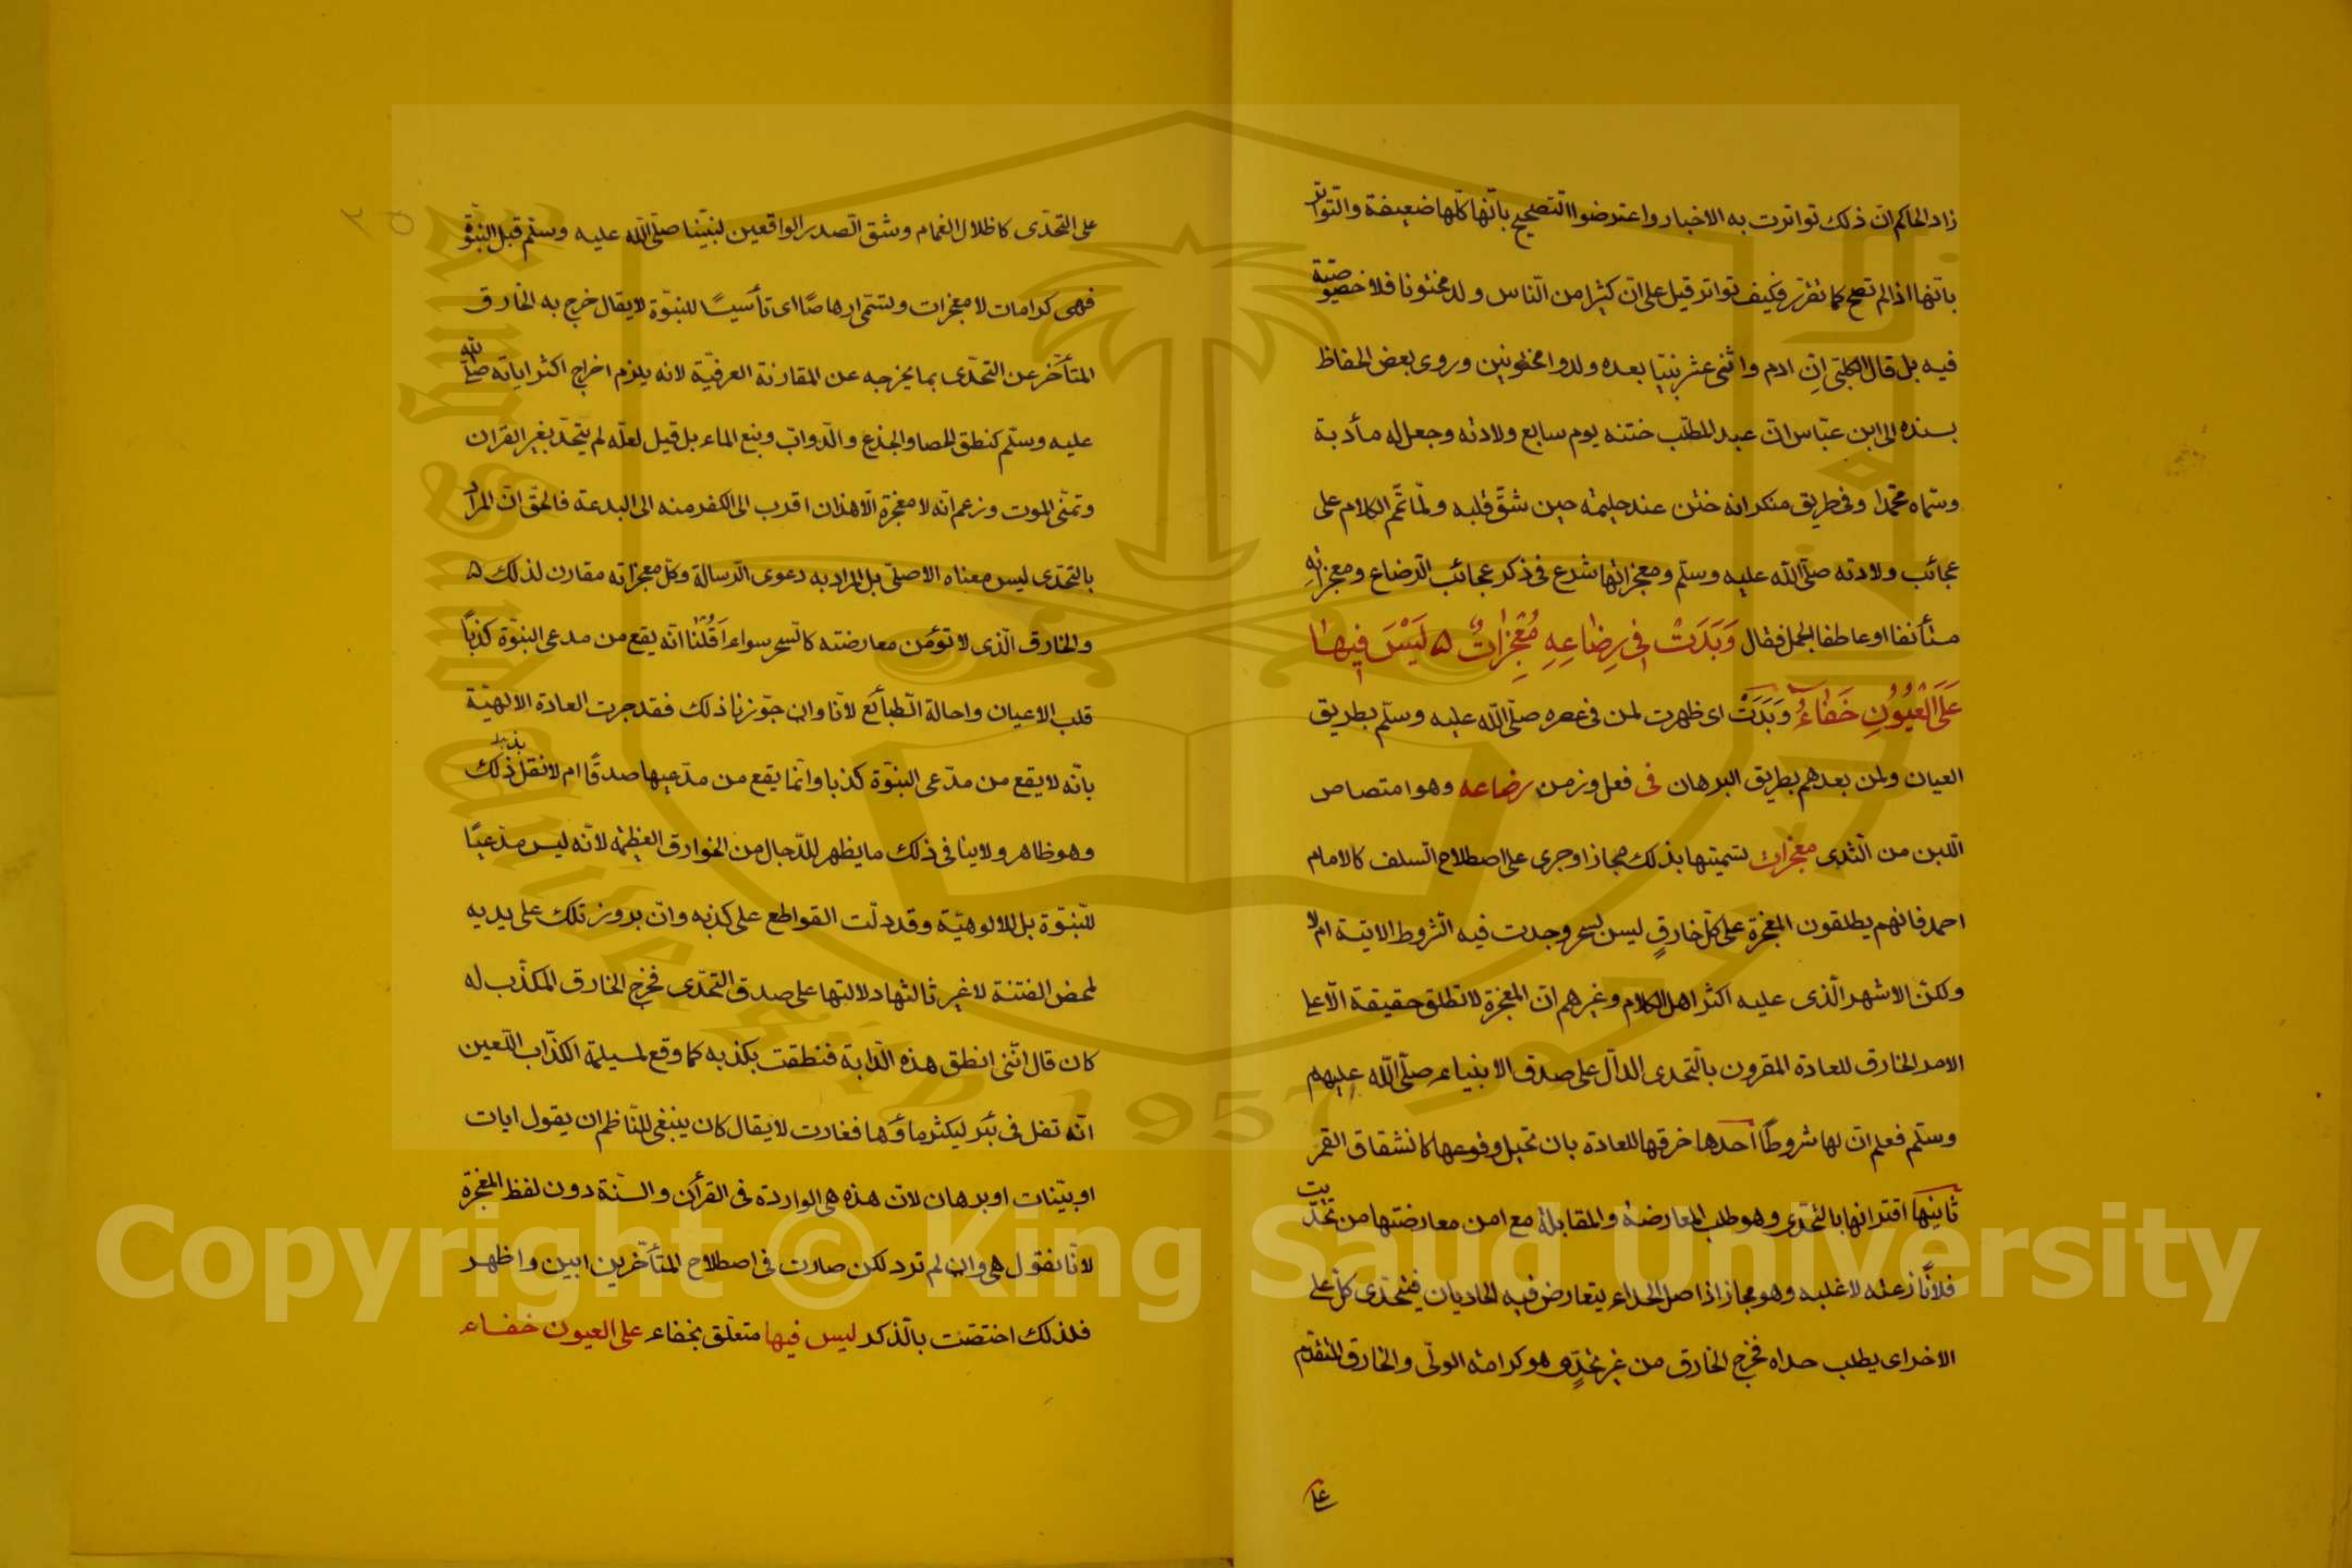 زاد الحاكم ان ذلك تواترت به الاخبار واعترضوا التصحيح بانها كلها ضعيفة والتواتر
بانها اذا لم تصح كما تقرر فكيف تواتر قيل على ان كثيرا من الناس ولد مختونا فلا خصوصية
فيه بل قال الكلبي ان ادم واثنى عشر نبيا بعده ولدوا مختونين وروى بعض الحفاظ
بسنده الى ابن عباس ان عبد المطلب ختنه يوم سابع ولادته وجعل له مأدبة
وسماه محمدا وفى طريق منكر انه ختن عند حليمة حين شق قلبه ولما تمم الكلام على
عجائب ولادته صلى الله عليه وسلم ومعجزاتها شرع فى ذكر عجائب الرضاع ومعجزاته
مستأنفا او عاطفا لجمل فقال وَبَدَتْ فِى رِضَاعِهِ مُعْجِزَاتٌ ۵ لَيْسَ فِيهَا
عَلَى الْعُيُونِ خَفَاءُ وَبَدَتْ اى ظهرت لمن فى عصره صلى الله عليه وسلم بطريق
العيان ولمن بعدهم بطريق البرهان فى فعل وزمن رضاعه وهو امتصاص
اللبن من الثدى معجزات تسميتها بذلك مجاز او جرى على اصطلاح السلف كالامام
احمد فانهم يطلقون المعجزة على كل خارقٍ ليس بسحر وجدت فيه الشروط الاتية ام لا
ولكن الاشهر الذى عليه اكثر اهل الكلام وغيرهم ان المعجزة لا تطلق حقيقة الا على
الامر الخارق للعادة المقرون بالتحدى الدال على صدق الانبياء صلى الله عليهم
وسلم فعلم ان لها شروطًا احدها خرقها للعادة بان تحيل وقوعها كانشقاق القمر
ثانيها اقترانها بالتحدى وهو طلب المعارضة والمقابلة مع امن معارضتها من تحديت
فلانًا نازعته لاغلبه وهو مجاز اذ اصل الحداء يتعارض فيه الحاديان فيتحدى كل على
الاخر اى يطلب حداه فخرج الخارق من غير تحدٍ وهو كرامة الولى والخارق المتقدم
على
على التحدى كاظلال الغمام وشق الصدر الواقعين لنبينا صلى الله عليه وسلم قبل النبوة
فهى كرامات لا معجزات وتسمى ارهاصًا اى تأسيسًا للنبوة لا يقال خرج به الخارق
المتأخر عن التحدى بما يخرجه عن المقارنة العرفية لانه يلزم اخراج اكثر اياته صلى الله
عليه وسلم كنطق الحصا والجذع والدواب ونبع الماء بل قيل لعله لم يتحد بغير القران
وتمنى الموت وزعم انه لا معجزة الا هذان اقرب الى الكفر منه الى البدعة فالحق ان المراد
بالتحدى ليس معناه الاصلى بل المراد به دعوى الرسالة وكل معجزاته مقارن لذلك ۵
والخارق الذى لا تؤمن معارضته كالسحر سواء اَقُلْنا انه يقع من مدعى النبوة كذبًا
قلب الاعيان واحالة الطبائع لانا وان جوزنا ذلك فقد جرت العادة الالهية
بانه لا يقع من مدعى النبوة كذبا وانما يقع من مدعيها صدقًا ام لا نقل بذلك
وهو ظاهر ولا ينافى ذلك ما يظهر للدجال من الخوارق العظيمة لانه ليس مدعيًا
للنبوة بل للالوهية وقد دلت القواطع على كذبه وان بروز تلك على يديه
لمحض الفتنة لا غير ثالثها دلالتها على صدق التحدى فخرج الخارق المكذب له
كان قال اننى انطق هذه الدابة فنطقت بكذبه كما وقع لمسيلمة الكذاب اللعين
انه تفل فى بئر ليكثر ماؤها فغارت لا يقال كان ينبغى للناظم ان يقول ايات
او بينات او برهان لان هذه هى الواردة فى القرأن والسنة دون لفظ المعجزة
لانا نقول هى وان لم ترد لكن صارت فى اصطلاح المتأخرين ابين واظهر
فلذلك اختصت بالذكر ليس فيها متعلق بخفاء على العيون خفاء
Copyright © King Saud University
1957